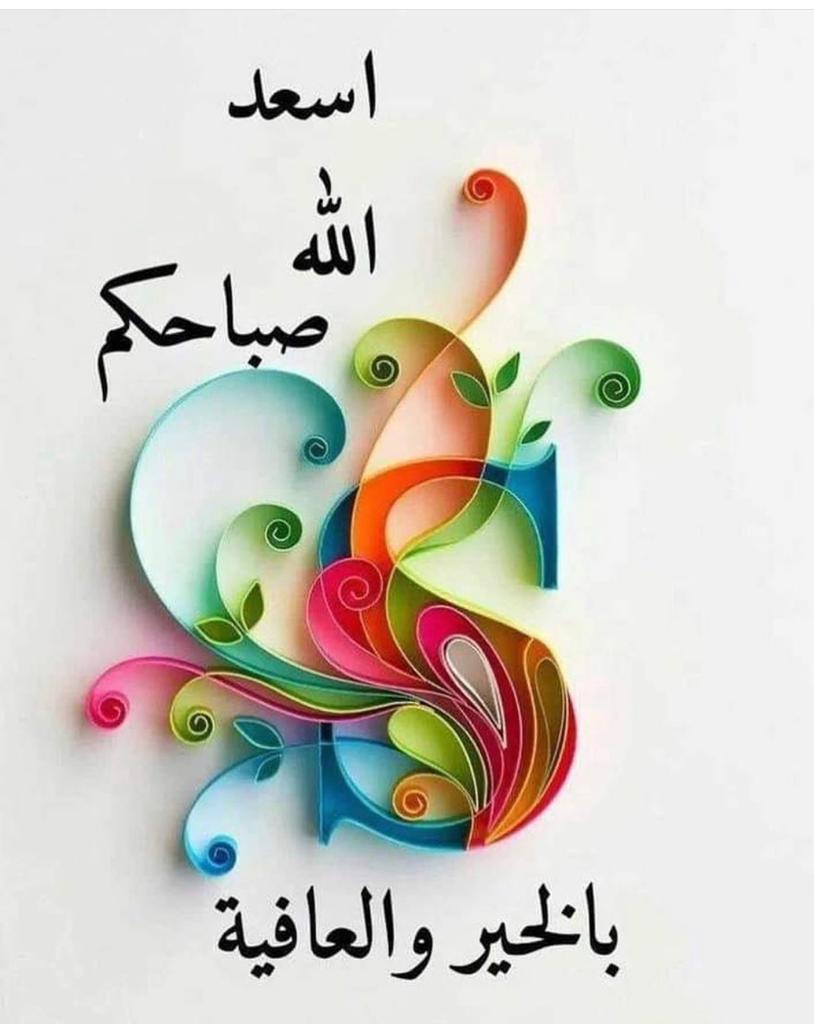 اسعد
الله
صباحكم
بالخير والعافية